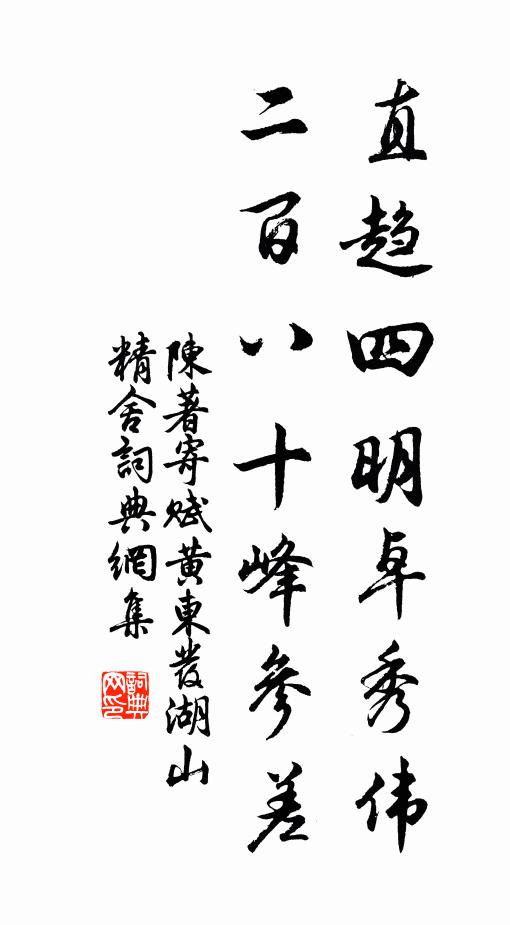 直趋四明卓秀伟
二百八十峰参差
陳著寄赋黄東發湖山
精舍詞典網集
詞典
网印